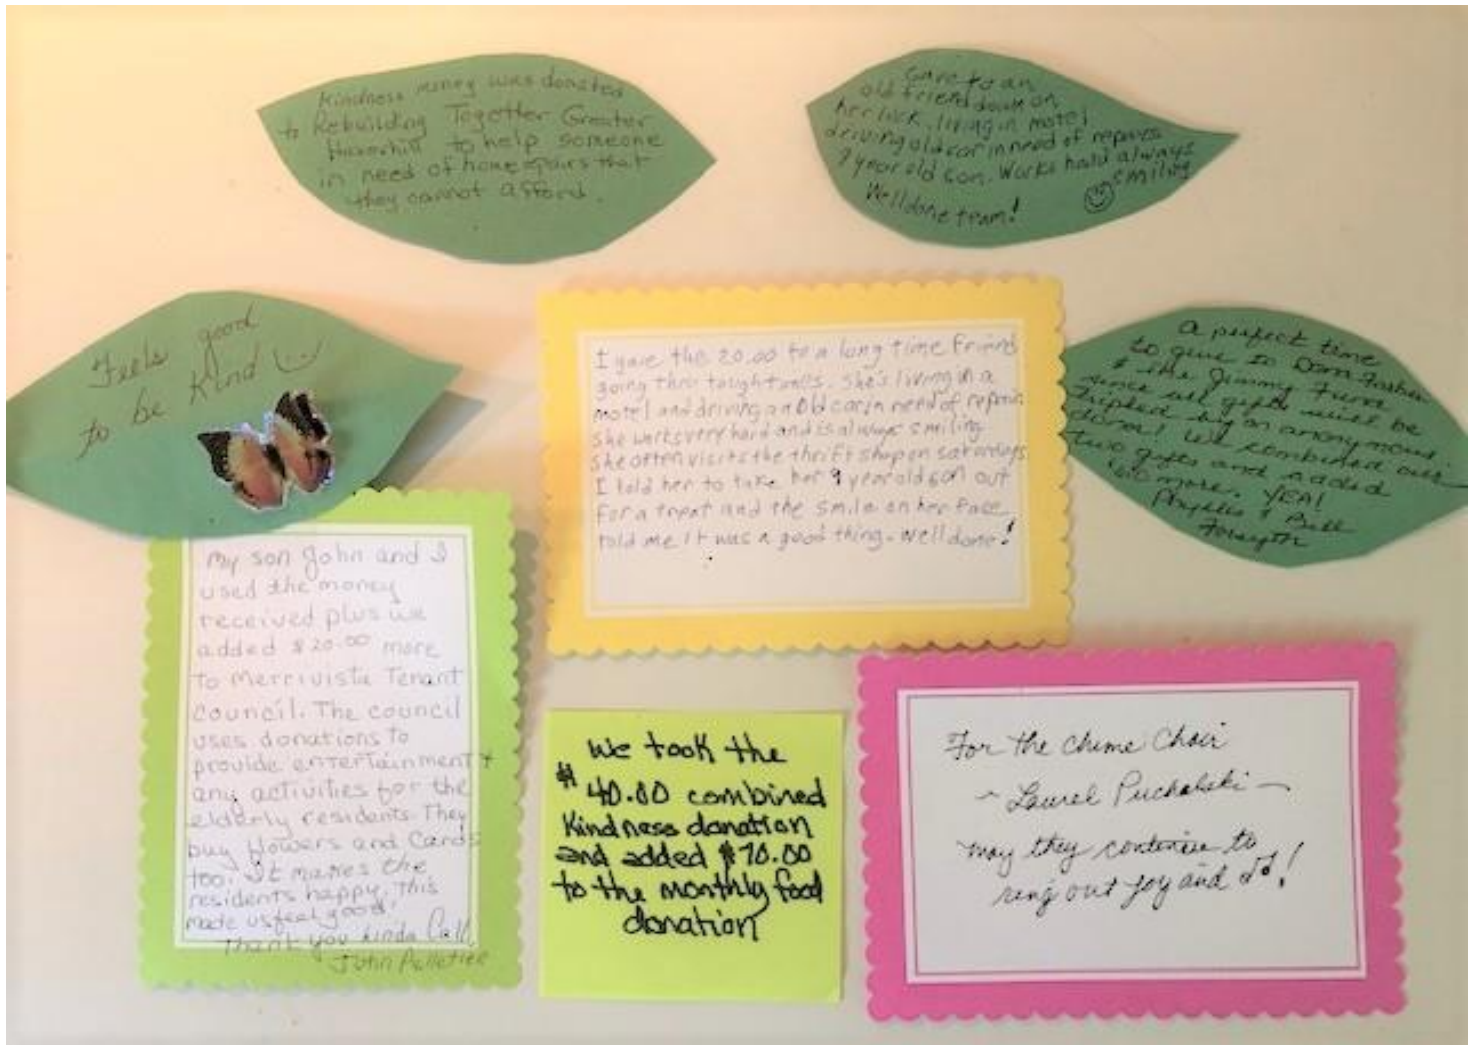 Kindness money was donated
to Rebuilding Together Greater
Haverhill to help someone
in need of home repairs that
they cannot afford.
Gave to an
old friend down on
her luck, living in motel
driving old car in need of repairs
9 year old son. Works hard always
smiling
Well done team!
Feels good
to be Kind
I gave the 20.00 to a long time friend
going thru tough times. She's living in a
motel and driving an old car in need of repair
She works very hard and is always smiling
She often visits the thrift shop on saturdays
I told her to take her 9 year old son out
for a treat and the smile on her face
told me it was a good thing. Well done!
A perfect time
to give to Dana-Farber
& the Jimmy Fund
since all gifts will be
tripled by an anonymous
donor! We combined our
two gifts and added
more. YEA!
Phyllis & Bill
Forsyth
My son John and I
used the money
received plus we
added $20.00 more
To Merrivista Tenant
Council. The council
uses donations to
provide entertainment +
any activities for the
elderly residents. They
buy flowers and Cards
too. It makes the
residents happy. This
made us feel good!
Thank you
John Pelletier
We took the
$40.00 combined
Kindness donation
and added $70.00
to the monthly food
donation
For the Chime Choir
~ Laurel Puchalski ~
may they continue to
ring out joy and ♫!